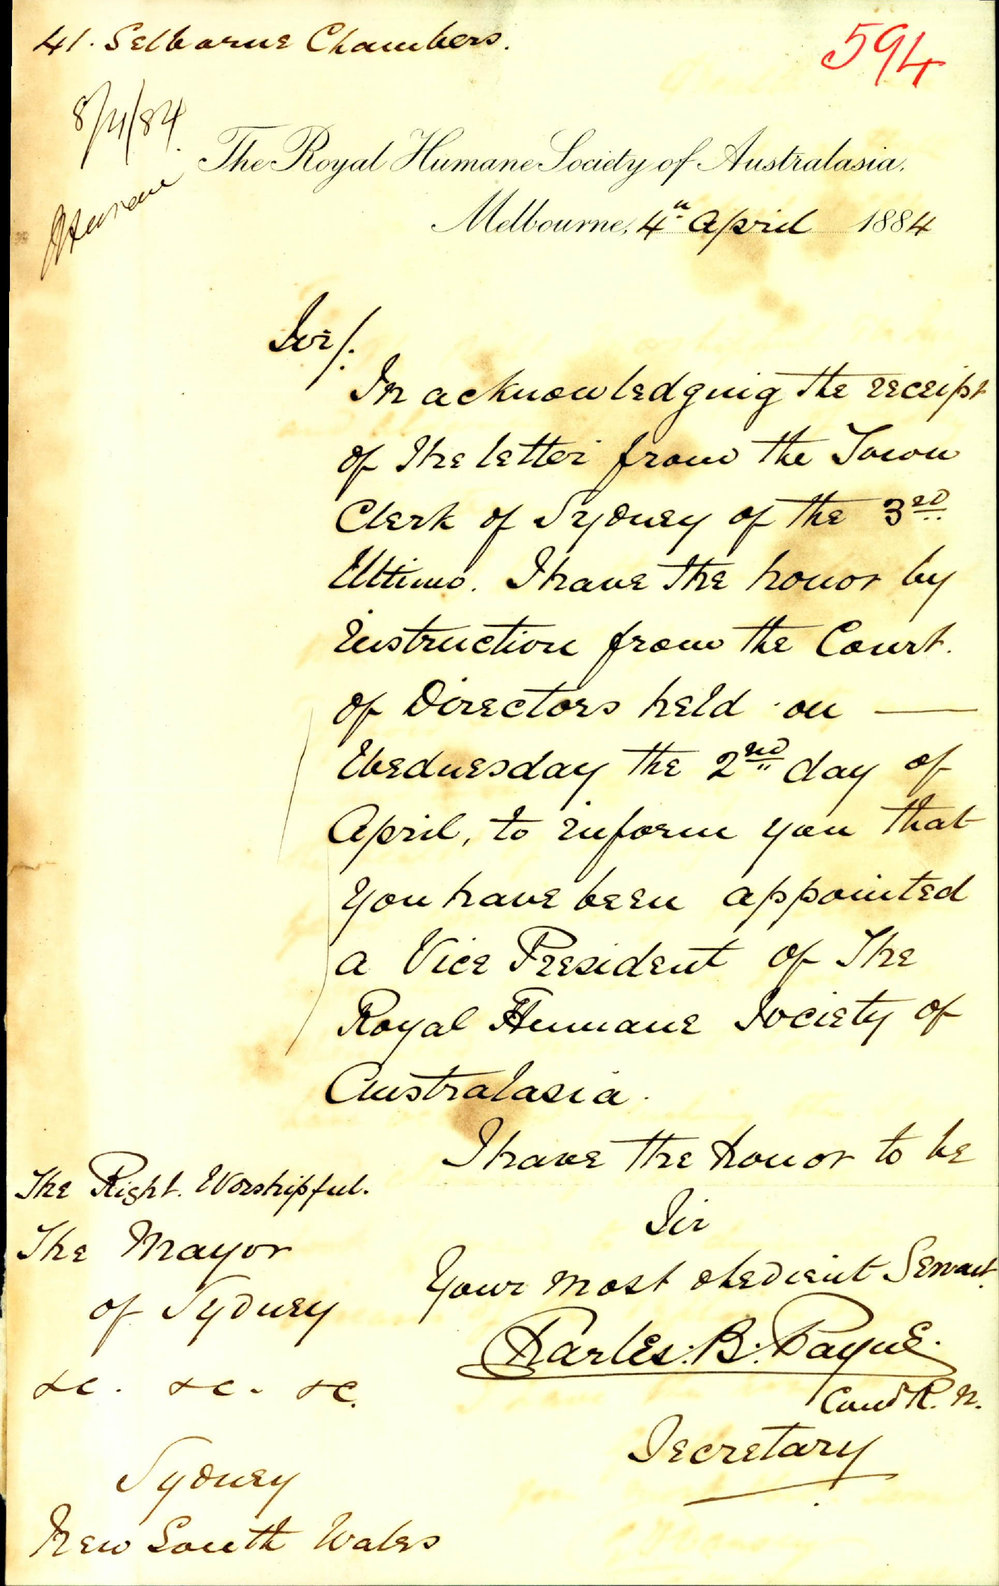 41. Selborne Chambers.
594
8/4/84
The Royal Humane Society of Australasia.
Melbourne, 4th April 1884
Sir/.
In acknowledging the receipt
of the letter from the Town
Clerk of Sydney of the 3rd
Ultimo. I have the honor by
instruction from the Court.
of Directors held on —
Wednesday the 2nd day of
April, to inform you that
you have been appointed
a Vice President of The
Royal Humane Society of
Australasia.
I have the honor to be
Sir
Your most obedient Servant.
Charles. B. Payne.
Comd R. N.
Secretary
The Right. Worshipful.
The Mayor
of Sydney
&c. &c. &c.
Sydney
New South Wales